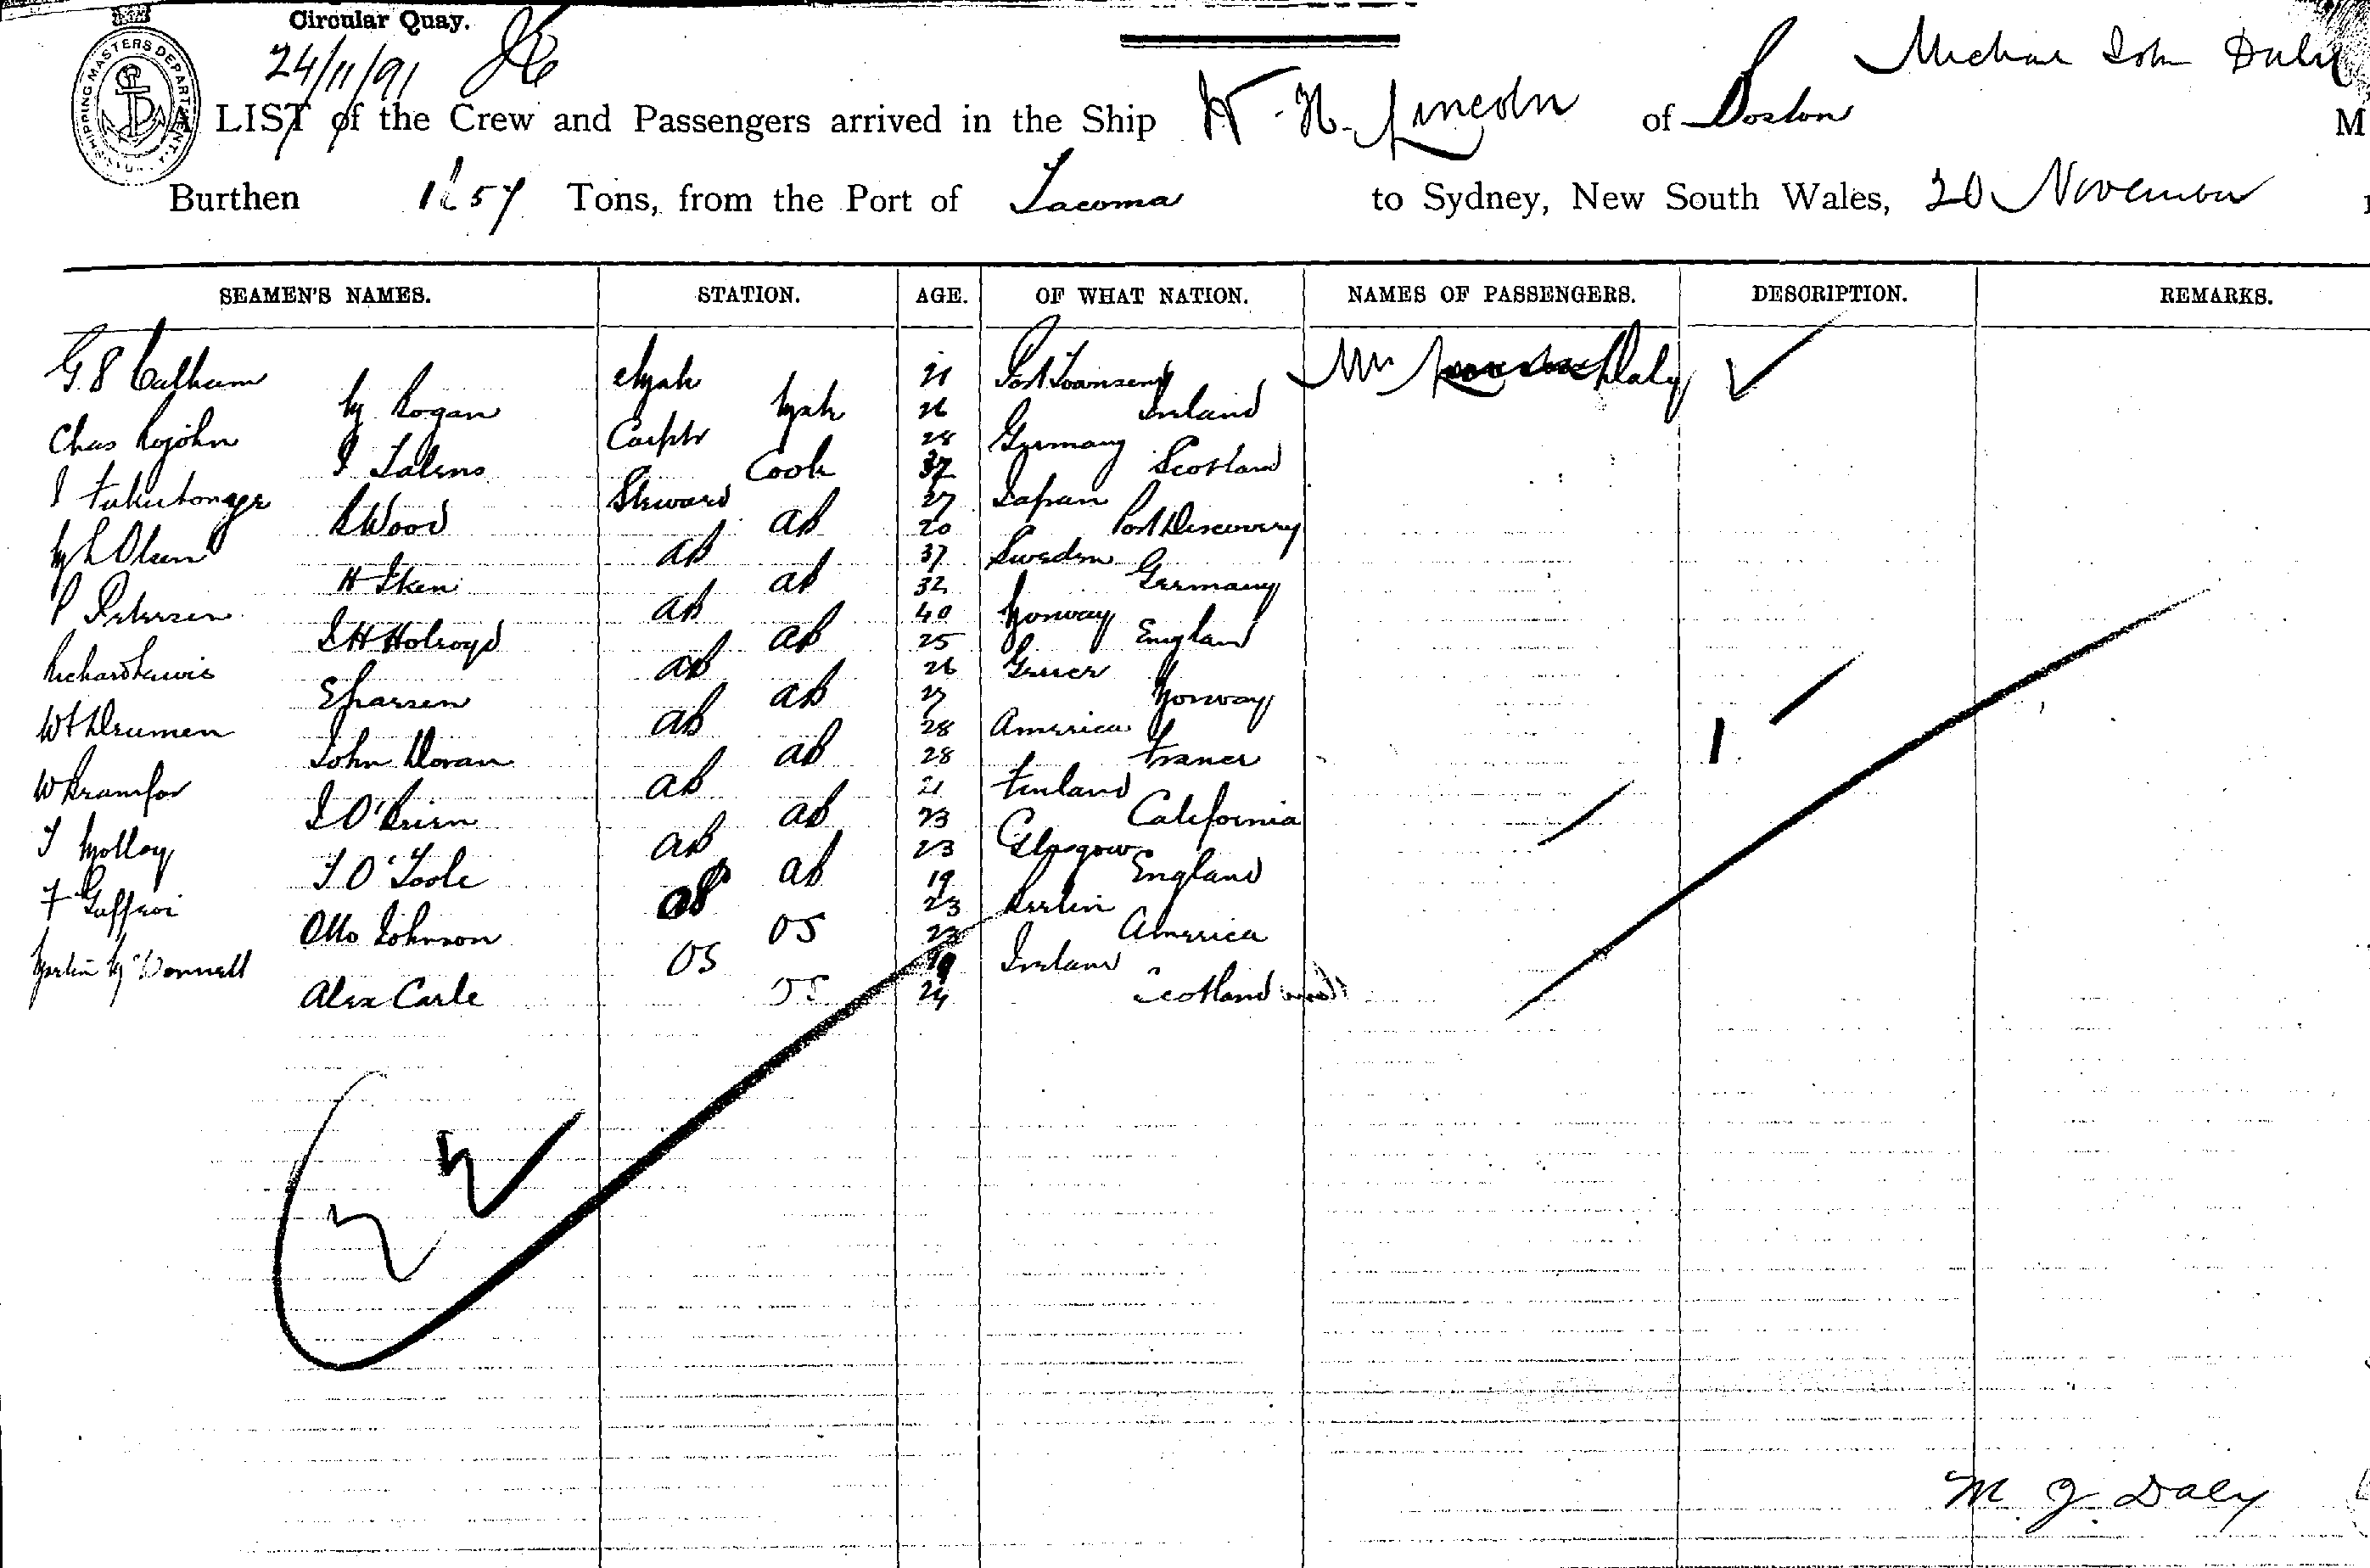 Circular Quay.
24/11/91
SHIPPING MASTERS DEPARTMENT
Michae John Daly
A LIST of the Crew and Passengers arrived in the Ship W. H. Lincoln of Boston M
Burthen Tons, from the Port of Tacoma to Sydney, New South Wales, 20 November
SEAMEN'S NAMES. STATION. AGE. OF WHAT NATION. NAMES OF PASSENGERS. DESCRIPTION. REMARKS.
G. S Calham 21 Port Townsend Mrs Daly
Rogan 26 Ireland
Chas Carptr 28 Germany
Cook 37 Scotland
Steward 27 Japan
R Wood ab 20 Port Discovery
Olsen ab 37 Sweden
H Iken ab 32 Germany
P Petersen ab 40 Norway
J H Holroyd ab 25 England
Richard Lewis ab 26 Greece
E Larsen ab 27 Norway
ab 28 America
John Doran ab 28 France
ab 21 Finland
J O'Brien ab 23 California
T Molloy ab 23 Glasgow
T O'Toole ab 19 England
ab 23 Berlin
Otto Johnson OS 23 America
Martin McDonnell OS 19 Ireland
Alex Carle OS 24 Scotland
M J Daly